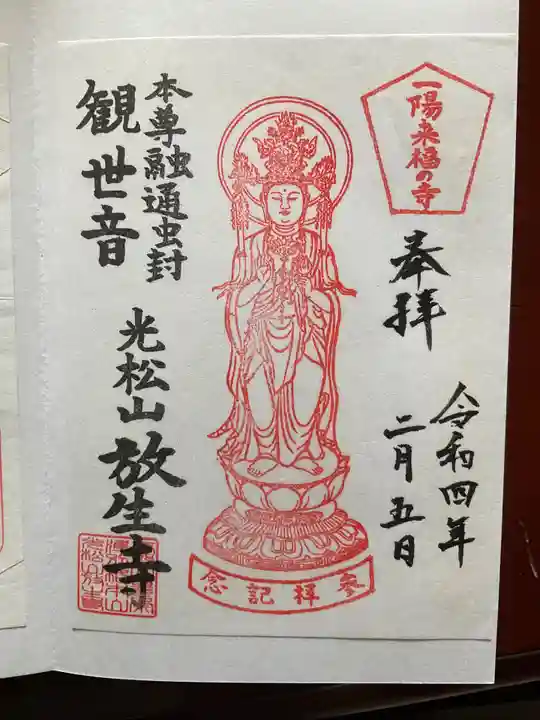 一陽来福の寺
奉拝
令和四年
二月五日
参拝記念
本尊融通虫封
観世音
光松山放生寺